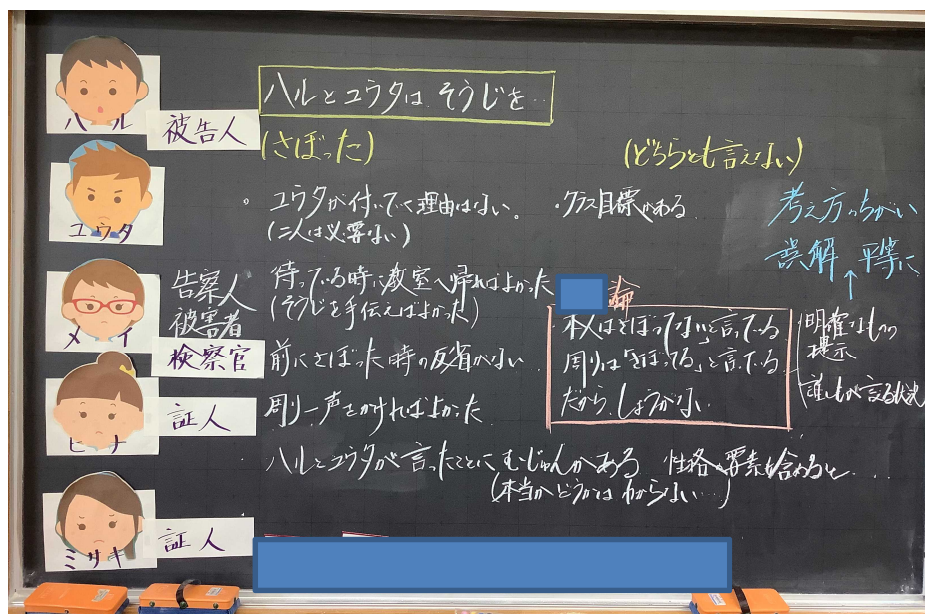 ハル
被告人
ユウタ
メイ
告察人
被害者
検察官
ヒナ
証人
ミサキ
証人
ハルとユウタは、そうじを…
(さぼった)
(どちらとも言えない)
・ユウタが付いていく理由はない。
(二人は必要ない)
待っている時に教室へ帰ればよかった
(そうじを手伝えばよかった)
前にさぼった時の反省がない
周り一声をかければよかった
ハルとユウタが言ったことにむじゅんがある
(本当かどうかはわからない…)
・クラス目標がある
論
本人は「さぼってない」と言ってる
周りは「さぼってる」と言ってる
だから、しょうがない
性格の要素も含めると…
考え方のちがい
誤解 平等に
↑
明確なものの
提示
誰もが言える状況